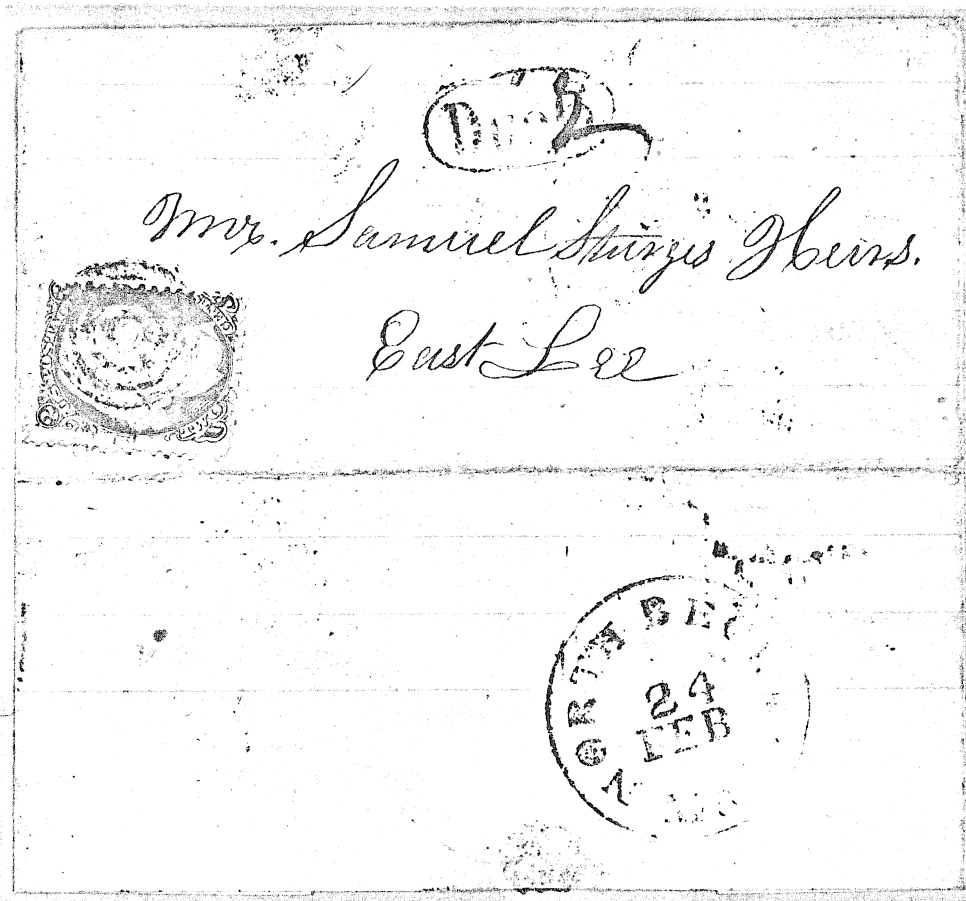 Due 2
Mr. Samuel Sturgis Heirs.
East Lee
NORTH BEC
24
FEB